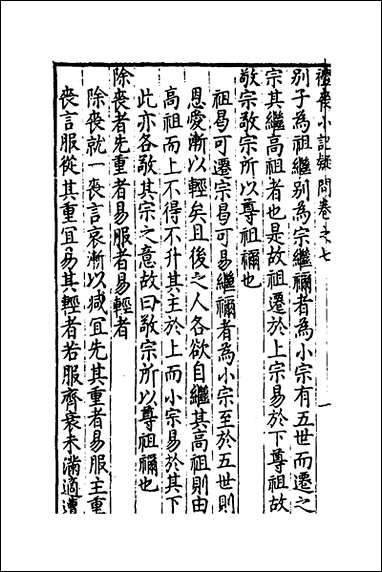 禮喪小記疑問卷之七 一
別子為祖繼別為宗繼禰者為小宗有五世而遷之
宗其繼高祖者也是故祖遷於上宗易於下尊祖故
敬宗敬宗所以尊祖禰也
祖曷可遷宗曷可易繼禰者為小宗至於五世則
恩愛漸以輕矣且後之人各欲自繼其高祖則由
高祖而上不得不升其主於上而小宗易於其下
此亦各敬其宗之意故曰敬宗所以尊祖禰也
除喪者先重者易服者易輕者
除喪就一喪言哀漸以减宜先其重者易服主重
喪言服從其重宜易其輕者若服齊衰未滿適遭